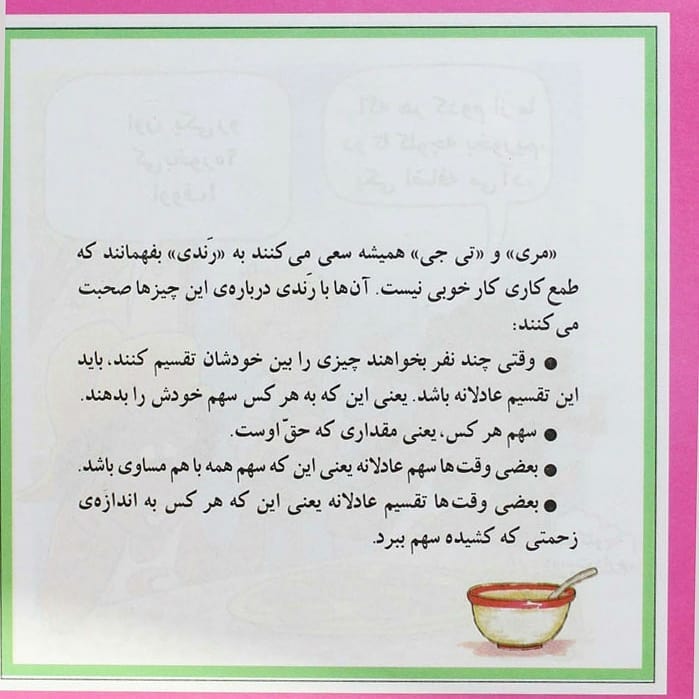 «مری» و «تی جی» همیشه سعی می‌کنند به «رَندی» بفهمانند که
طمع کاری کار خوبی نیست. آن‌ها با رَندی درباره‌ی این چیزها صحبت
می‌کنند:
● وقتی چند نفر بخواهند چیزی را بین خودشان تقسیم کنند، باید
این تقسیم عادلانه باشد. یعنی این که به هر کس سهم خودش را بدهند.
● سهم هر کس، یعنی مقداری که حقّ اوست.
● بعضی وقت‌ها سهم عادلانه یعنی این که سهم همه با هم مساوی باشد.
● بعضی وقت‌ها تقسیم عادلانه یعنی این که هر کس به اندازه‌ی
زحمتی که کشیده سهم ببرد.